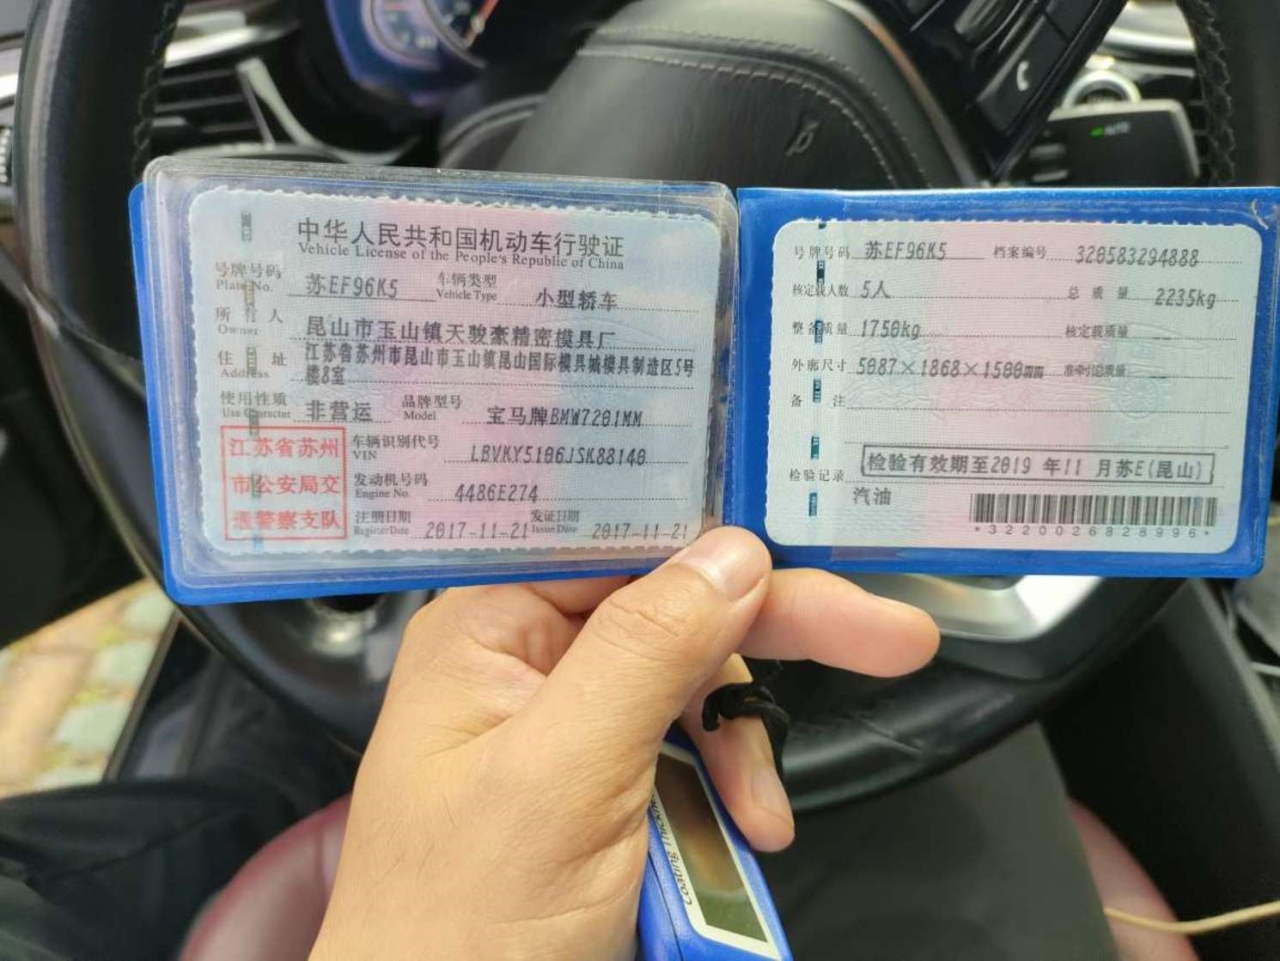 中华人民共和国机动车行驶证
Vehicle License of the People's Republic of China
号牌号码 苏EF96K5 车辆类型 小型轿车
Plate No. Vehicle Type
所有人 昆山市玉山镇天骏豪精密模具厂
Owner
住址 江苏省苏州市昆山市玉山镇昆山国际模具城模具制造区5号
Address 楼8室
使用性质 非营运 品牌型号 宝马牌BMW7201MM
Use Character Model
江苏省苏州
市公安局交
通警察支队
车辆识别代号 LBVKY5106JSK88140
VIN
发动机号码 4486E274
Engine No.
注册日期 2017-11-21 发证日期 2017-11-21
Register Date Issue Date
号牌号码 苏EF96K5 档案编号 320583294888
核定载人数 5人 总质量 2235kg
整备质量 1750kg 核定载质量
外廓尺寸 5087×1868×1500mm 准牵引总质量
备注
检验记录 检验有效期至2019年11月苏E(昆山)
汽油
*3220026828996*
AUTO
Coating Thickne